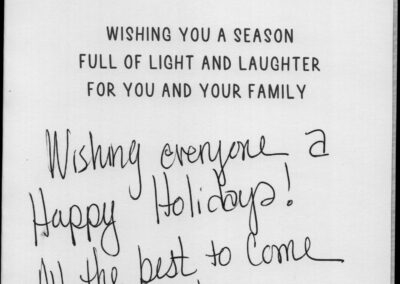 WISHING YOU A SEASON
FULL OF LIGHT AND LAUGHTER
FOR YOU AND YOUR FAMILY
Wishing everyone a
Happy Holidays!
All the best to Come